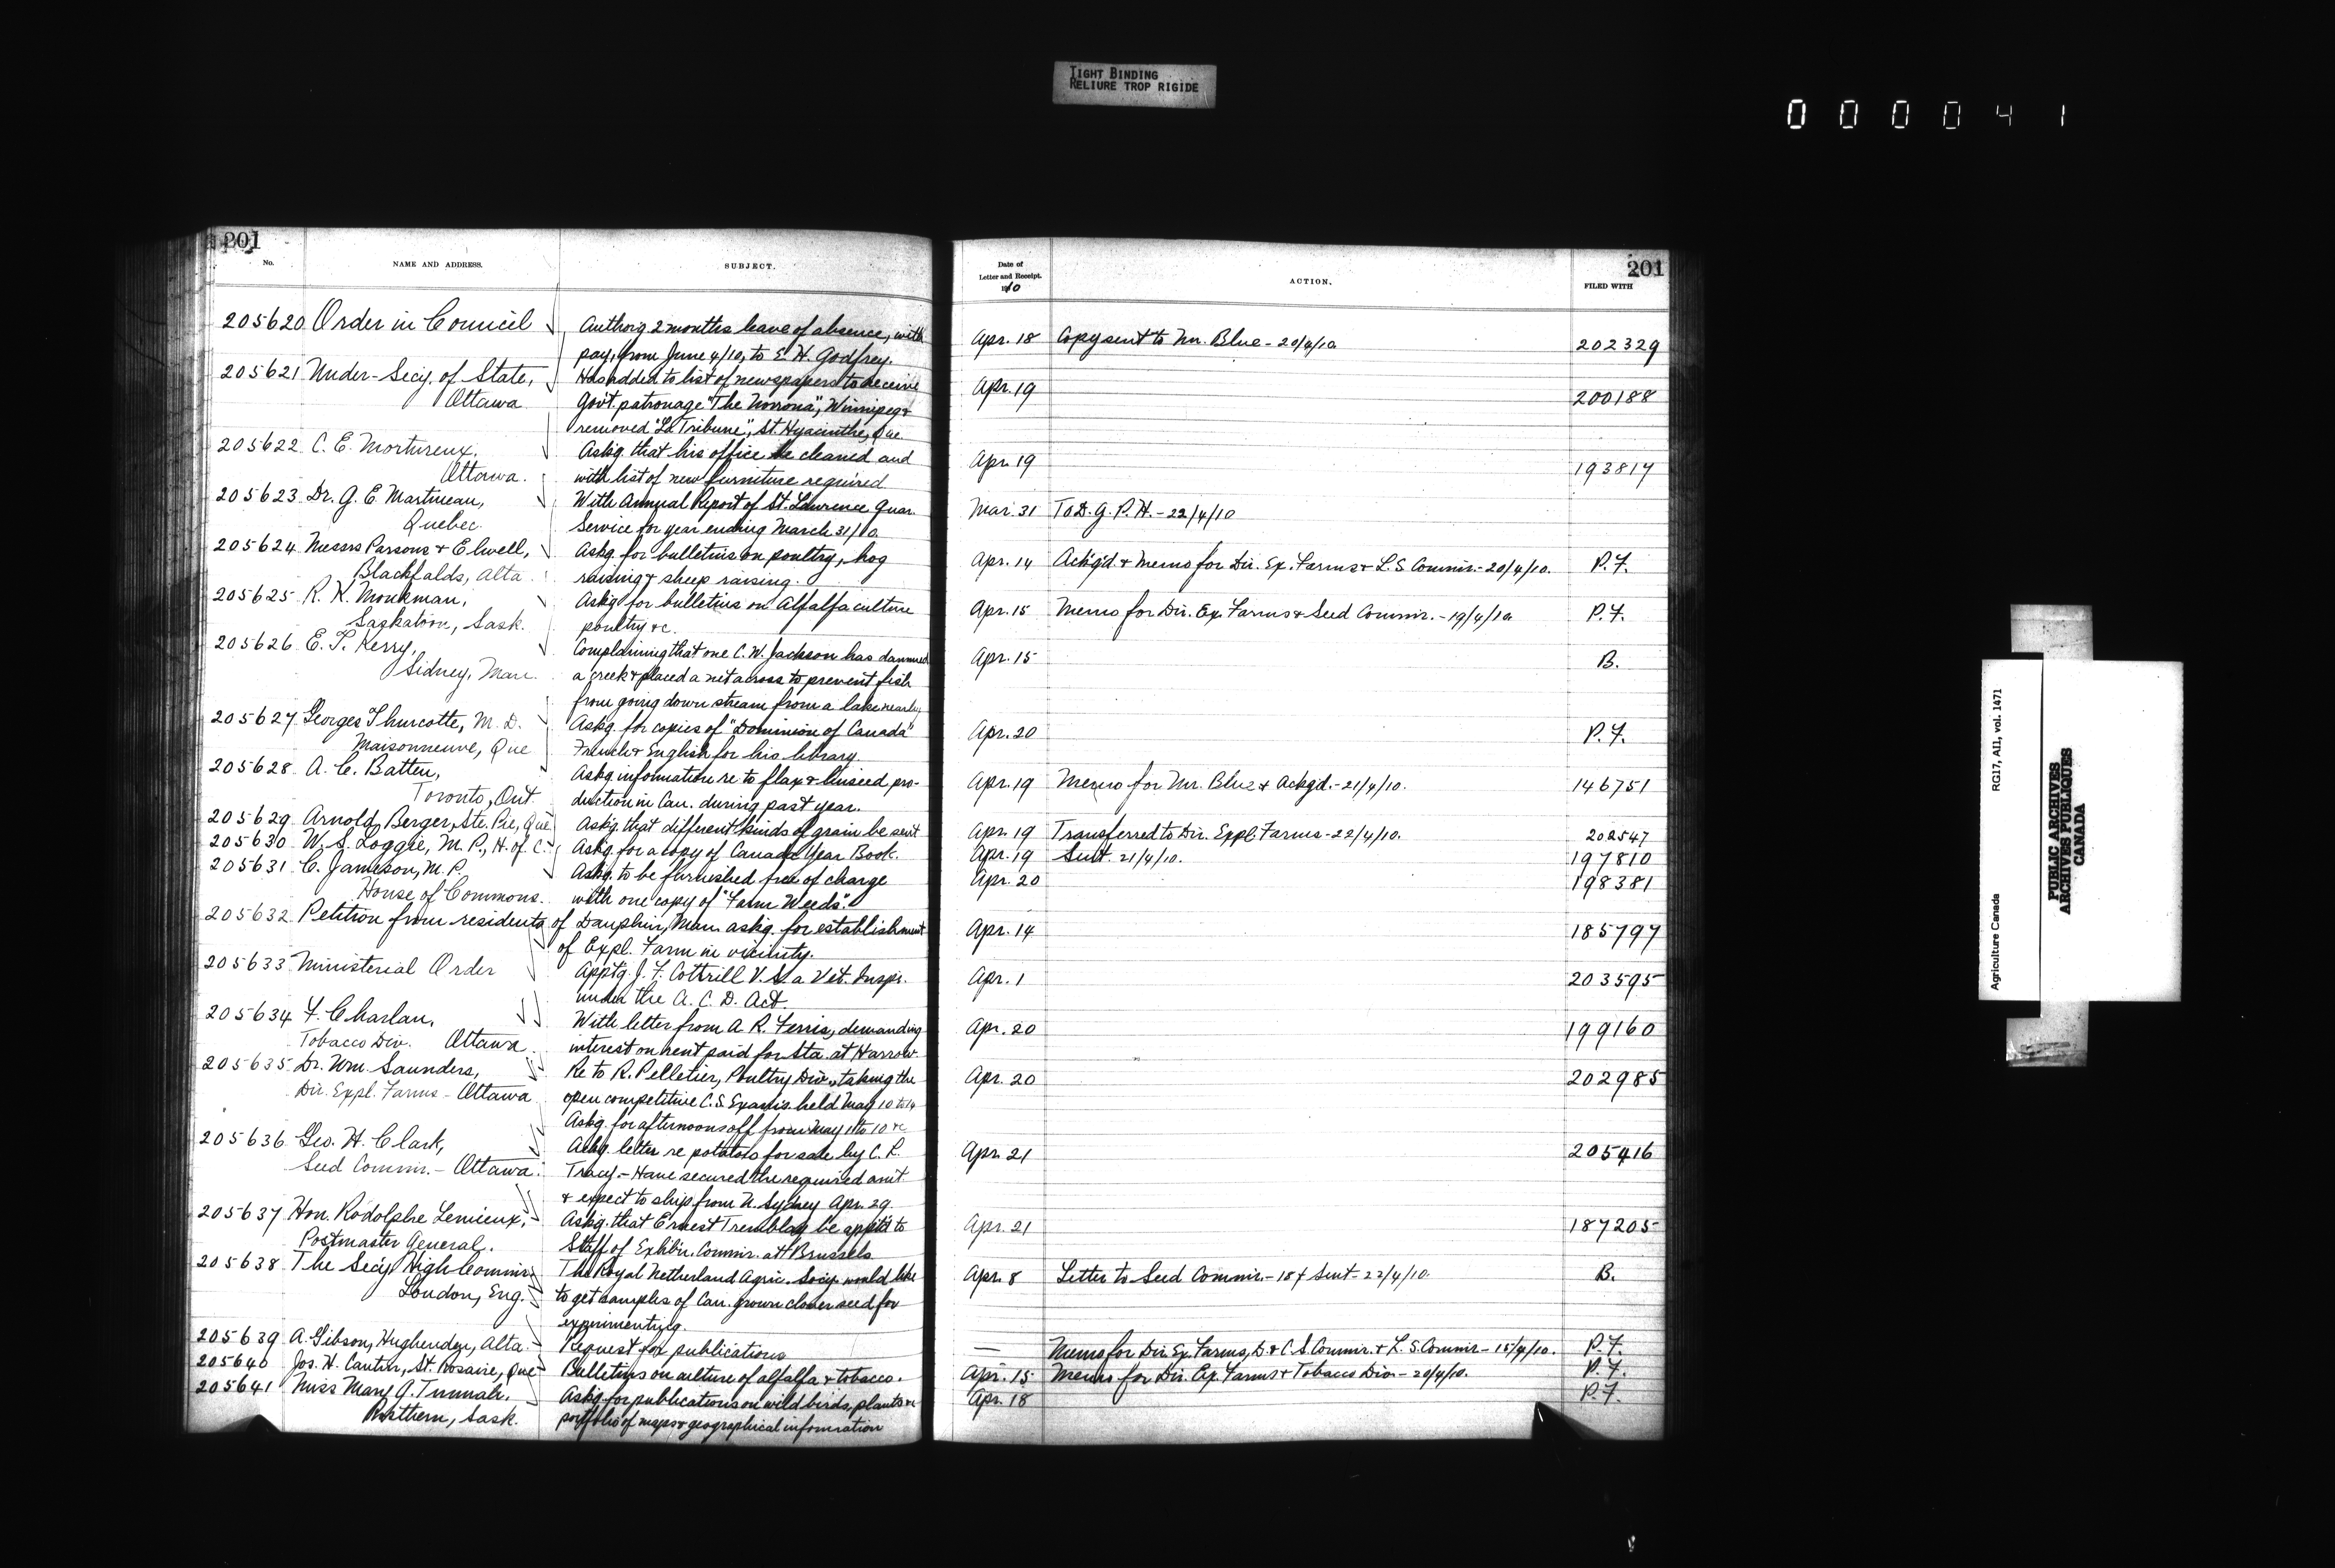 TIGHT BINDING
RELIURE TROP RIGIDE
000041
201
No. NAME AND ADDRESS. SUBJECT.
205620 Order in Council Authorg 2 months leave of absence, with
pay, from June 4/10, to E. H. Godfrey.
205621 Under-Secy. of State, Has added to list of newspapers to receive
Ottawa Govt. patronage "The Norrona", Winnipeg &
removed "La Tribune", St. Hyacinthe, Que.
205622 C. E. Mortureux, Askg. that his office be cleaned and
Ottawa. with list of new furniture required
205623 Dr. G. E. Martineau, With Annual Report of St. Lawrence Quar.
Quebec. Service for year ending March 31/10
205624 Messrs Parsons & Elwell, Askg. for bulletins on poultry, hog
Blackfalds, Alta. raising & sheep raising.
205625 R. H. Monkman, Askg for bulletins on Alfalfa culture
Saskatoon, Sask. poultry &c.
205626 E. T. Kerry, Complaining that one C. W. Jackson has dammed
Sidney, Man. a creek & placed a net across to prevent fish
from going down stream from a lake nearby
205627 Georges Thurcotte, M. D. Askg. for copies of "Dominion of Canada"
Maisonneuve, Que French & English for his library.
205628 A. C. Batten, Askg. information re to flax & linseed, pro-
Toronto, Ont. duction in Can. during past year.
205629 Arnold Berger, Ste. Pie, Que Askg. that different kinds of grain be sent
205630 W. S. Loggie, M. P., H. of C. Askg. for a copy of Canada Year Book.
205631 C. Jameson, M. P. Askg. to be furnished free of charge
House of Commons. with one copy of "Farm Weeds".
205632 Petition from residents of Dauphin, Man. askg. for establishment
of Expl. Farm in vicinity.
205633 Ministerial Order Apptg. J. F. Cottrill V. S. a Vet. Inspr.
under the A. C. D. Act.
205634 F. Charlan, With letter from A. R. Ferris, demanding
Tobacco Div. Ottawa interest on rent paid for Sta. at Harrow
205635 Dr. Wm. Saunders, Re to R. Pelletier, Poultry Div., taking the
Dir. Expl. Farms - Ottawa open competitive C. S. Exams. held May 10 to 14
Askg. for afternoons off from May 1 to 10 &c
205636 Geo. H. Clark, Ackg. letter re potatoes for sale by C. L.
Seed Commr. - Ottawa. Tracy. - Have secured the required amt
& expect to ship from N. Sydney Apr. 29.
205637 Hon. Rodolphe Lemieux, Askg. that Ernest Tremblay be apptd to
Postmaster General. Staff of Exhibn. Commr. at Brussels
205638 The Secy. High Commr The Royal Netherland Agric. Socy. would like
London, Eng. to get samples of Can. grown clover seed for
experimentg.
205639 A. Gibson, Hughenden, Alta. Request for publications
205640 Jos. H. Cantin, St. Rosaire, Que Bulletins on culture of alfalfa & tobacco.
205641 Miss Mary G. Askg. for publications on wild birds, plants &c
Rosthern, Sask. portfolio of maps & geographical information
201
Date of Letter and Receipt. 1910 ACTION. FILED WITH
Apr. 18 Copy sent to Mr. Blue - 20/4/10 202329
Apr. 19 200188
Apr. 19 193817
Mar. 31 To D. G. P. H. - 22/4/10
Apr. 14 Ackg'd. & Memo for Dir. Ex. Farms & L. S. Commr. - 20/4/10. P. F.
Apr. 15 Memo for Dir. Ex. Farms & Seed Commr. - 19/4/10 P. F.
Apr. 15 B.
Apr. 20 P. F.
Apr. 19 Memo for Mr. Blue & Ackgd. - 21/4/10. 146751
Apr. 19 Transferred to Dir. Expl. Farms - 22/4/10. 202547
Apr. 19 Sent. 21/4/10. 197810
Apr. 20 198381
Apr. 14 185797
Apr. 1 203595
Apr. 20 199160
Apr. 20 202985
Apr. 21 205416
Apr. 21 187205
Apr. 8 Letter to Seed Commr. - 18 & Sent - 22/4/10. B.
— Memo for Dir. Ex. Farms, D. & C. S. Commr. & L. S. Commr - 15/4/10. P. F.
Apr. 15 Memo for Dir. Ex. Farms & Tobacco Div. - 20/4/10. P. F.
Apr. 18 P. F.
Agriculture Canada RG17, A11, vol. 1471
PUBLIC ARCHIVES
ARCHIVES PUBLIQUES
CANADA